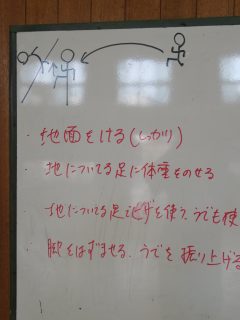 ・地面をける(しっかり)
・地についてる足に体重をのせる
・地についてる足でヒザを使う、うでも使
・脚をはずませる、うでを振り上げる